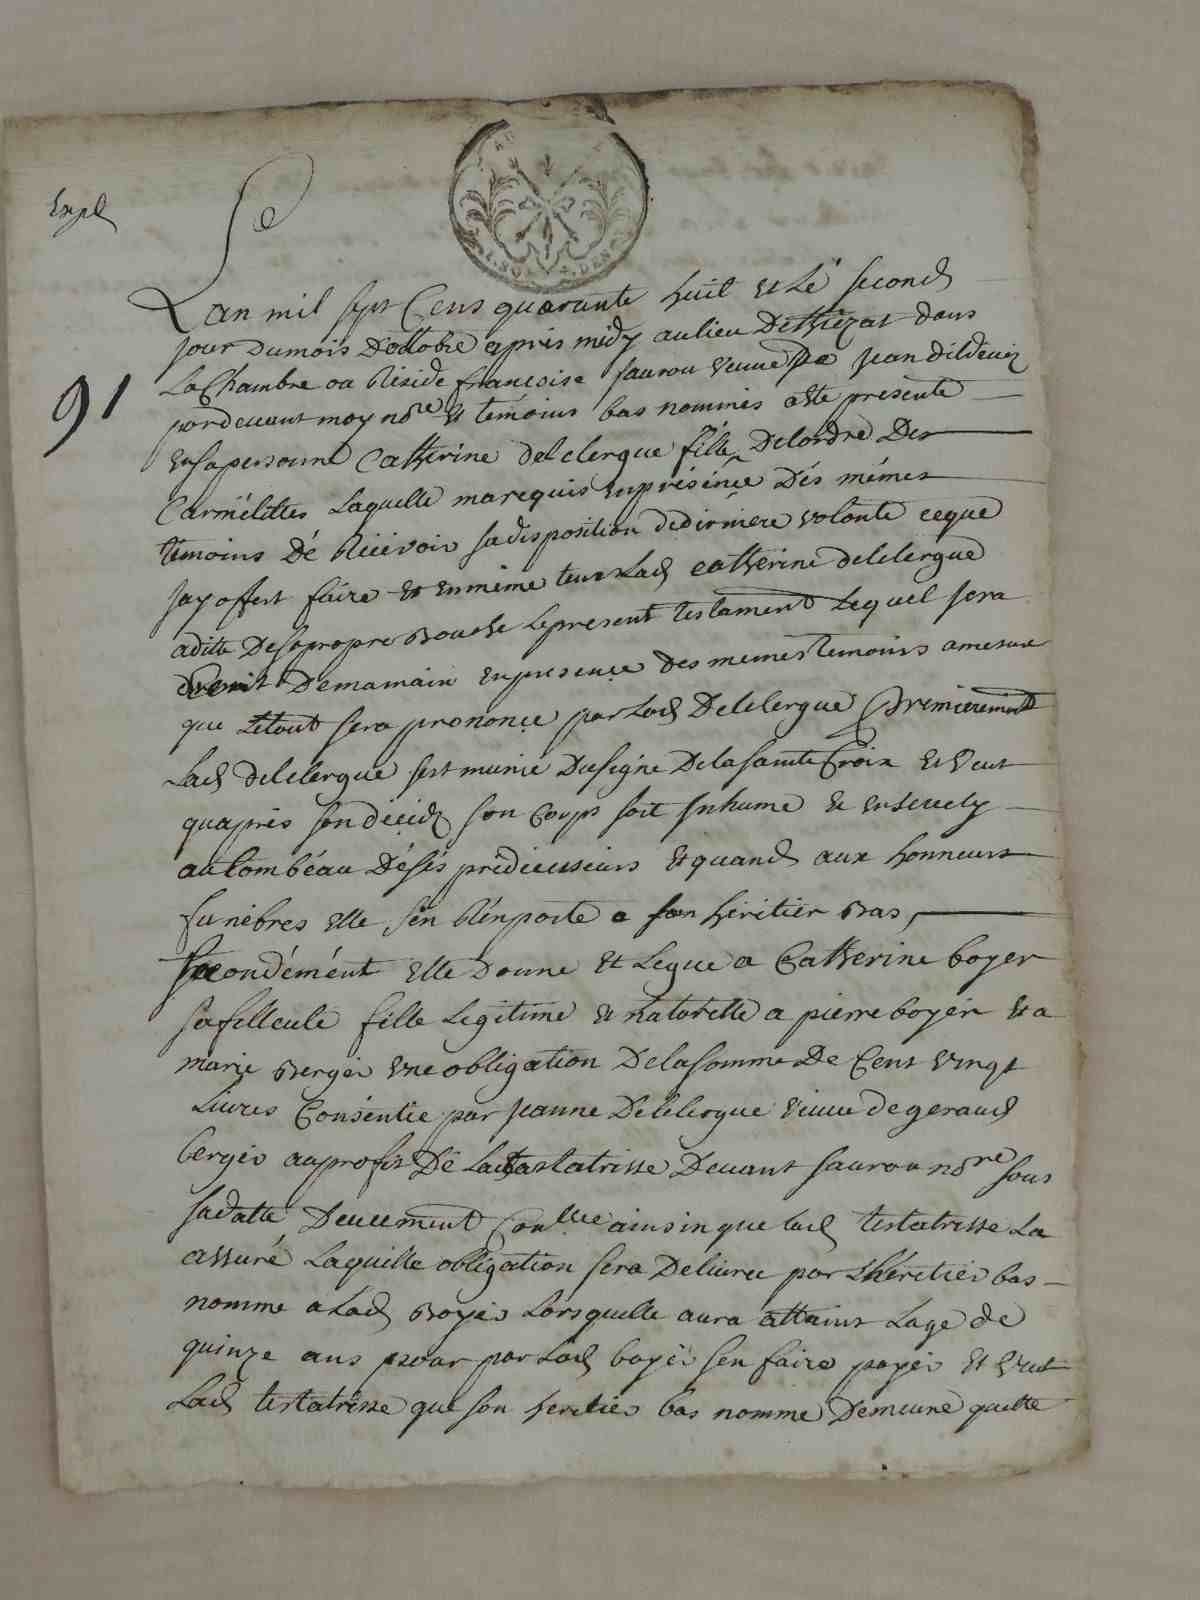 Expl
91
Lan mil sept Cens quarante huit et Le second
jour dumois Doctobre apres midy aulieu De thiezat dans
La Chambre ou Reside francoise saurou veuve de Jean
pardevant moy nore et temoins bas nommes aste presente
ensapersonne Catherine delclergue fille Delordre Des
Carmelittes Laquelle marequis enpresence Des memes
temoins De Recevoir sadisposition dederniere volonte ceque
jay offert faire et enmeme tems Lad catherine delclergue
aditte Desapropre Bouche Lepresent testament Lequel sera
ecrit Demamain enpresence des memes temoins amesure
que Letout sera prononce par Lad Delclergue Premierement
Lad delclergue sest munie Dusigne Delasainte Croix et Veut
quapres son deced son Corps soit Inhume et ensevely
autombeau Deses predecesseurs et quand aux honneurs
funebres elle sen Remporte a son heritier Bas,
Secondement elle Donne et Legue a Catherine boyer
safilleule fille Legitime et naturelle a pierre boyer et a
marie Berger une obligation Delasomme De Cent vingt
Livres Consentie par Jeanne Delclergue veuve de geraud
berger auprofit De Lad testatrisse Devant saurou nore sous
sadatte Deucement Conllee ainsin que lad testatrisse La
assure Laquelle obligation sera Delivree par Lheretier bas
nomme a Lad Boyer Lorsquelle aura attaint Lage de
quinze ans pour par Lad boyer sen faire payer et Veut
Lad testatrisse que son heretier bas nomme Demeure quitte